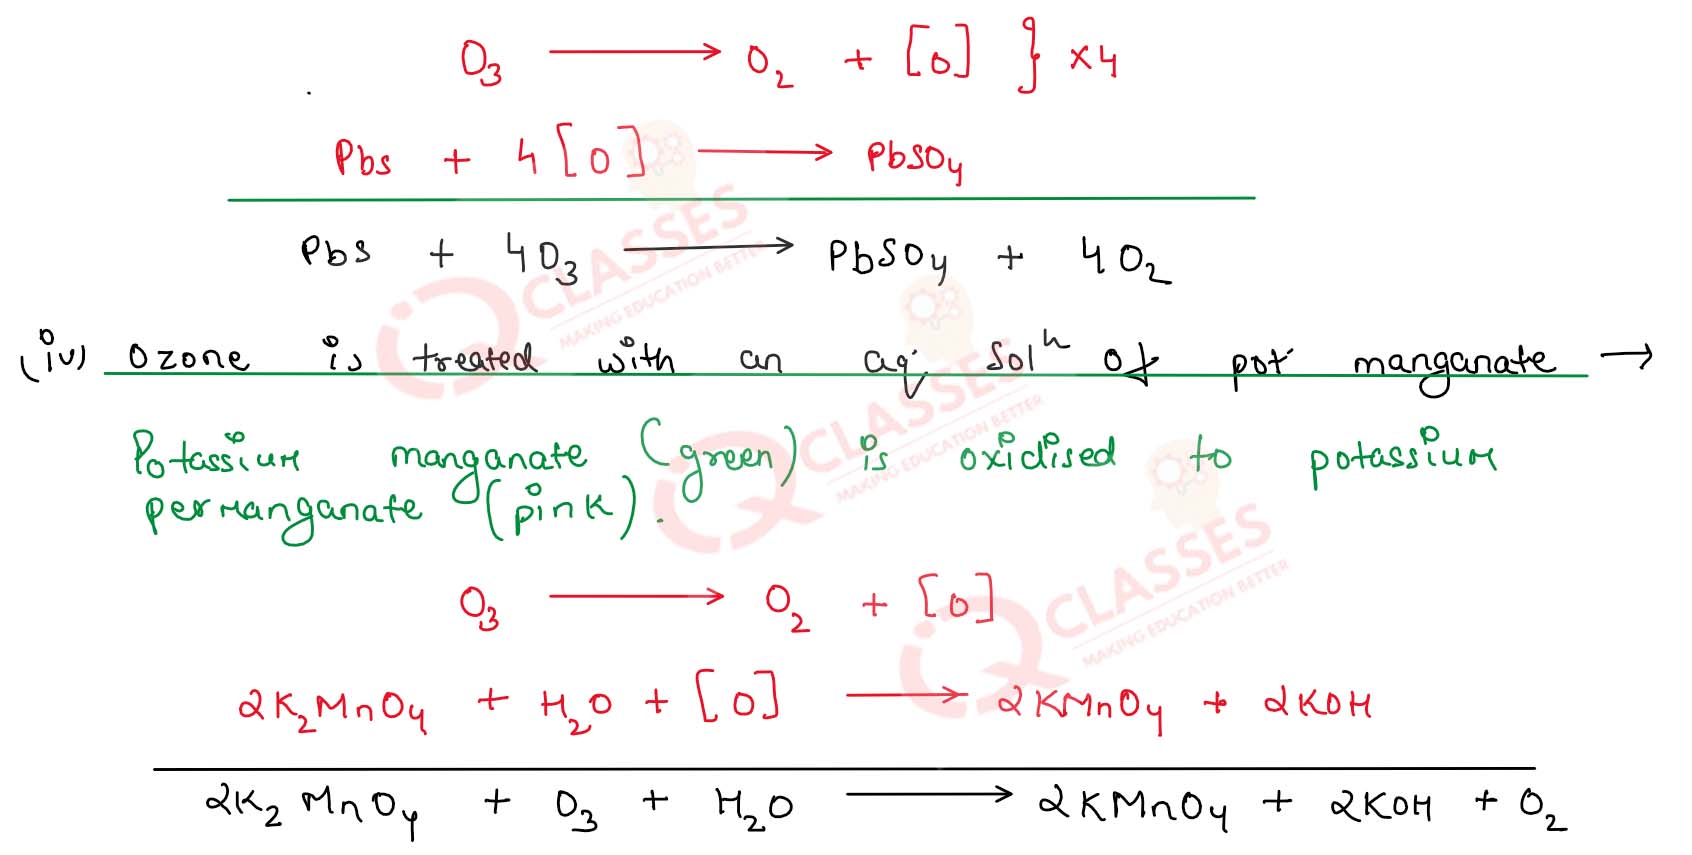 O₃ ⟶ O₂ + [O] } ×4
Pbs + 4[O] ⟶ PbSO₄
Pbs + 4O₃ ⟶ PbSO₄ + 4O₂
(iv) Ozone is treated with an aq. solⁿ of pot. manganate →
Potassium manganate (green) is oxidised to potassium
permanganate (pink).
O₃ ⟶ O₂ + [O]
2K₂MnO₄ + H₂O + [O] ⟶ 2KMnO₄ + 2KOH
2K₂MnO₄ + O₃ + H₂O ⟶ 2KMnO₄ + 2KOH + O₂
iQ CLASSES
MAKING EDUCATION BETTER
iQ CLASSES
MAKING EDUCATION BETTER
iQ CLASSES
MAKING EDUCATION BETTER